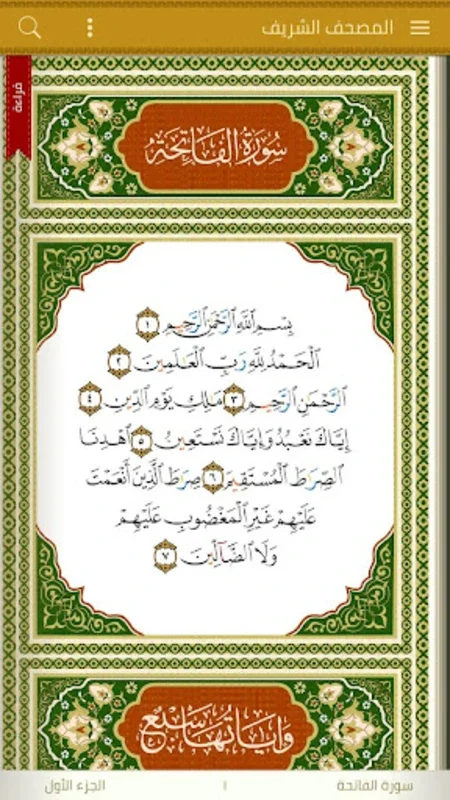 المصحف الشريف
قراءة
سورة الفاتحة
بِسْمِ ٱللَّهِ ٱلرَّحْمَٰنِ ٱلرَّحِيمِ ١
ٱلْحَمْدُ لِلَّهِ رَبِّ ٱلْعَٰلَمِينَ ٢
ٱلرَّحْمَٰنِ ٱلرَّحِيمِ ٣ مَٰلِكِ يَوْمِ ٱلدِّينِ ٤
إِيَّاكَ نَعْبُدُ وَإِيَّاكَ نَسْتَعِينُ ٥ ٱهْدِنَا
ٱلصِّرَٰطَ ٱلْمُسْتَقِيمَ ٦ صِرَٰطَ ٱلَّذِينَ أَنْعَمْتَ
عَلَيْهِمْ غَيْرِ ٱلْمَغْضُوبِ عَلَيْهِمْ
وَلَا ٱلضَّآلِّينَ ٧
وآياتها سبع
سورة الفاتحة
١
الجزء الأول